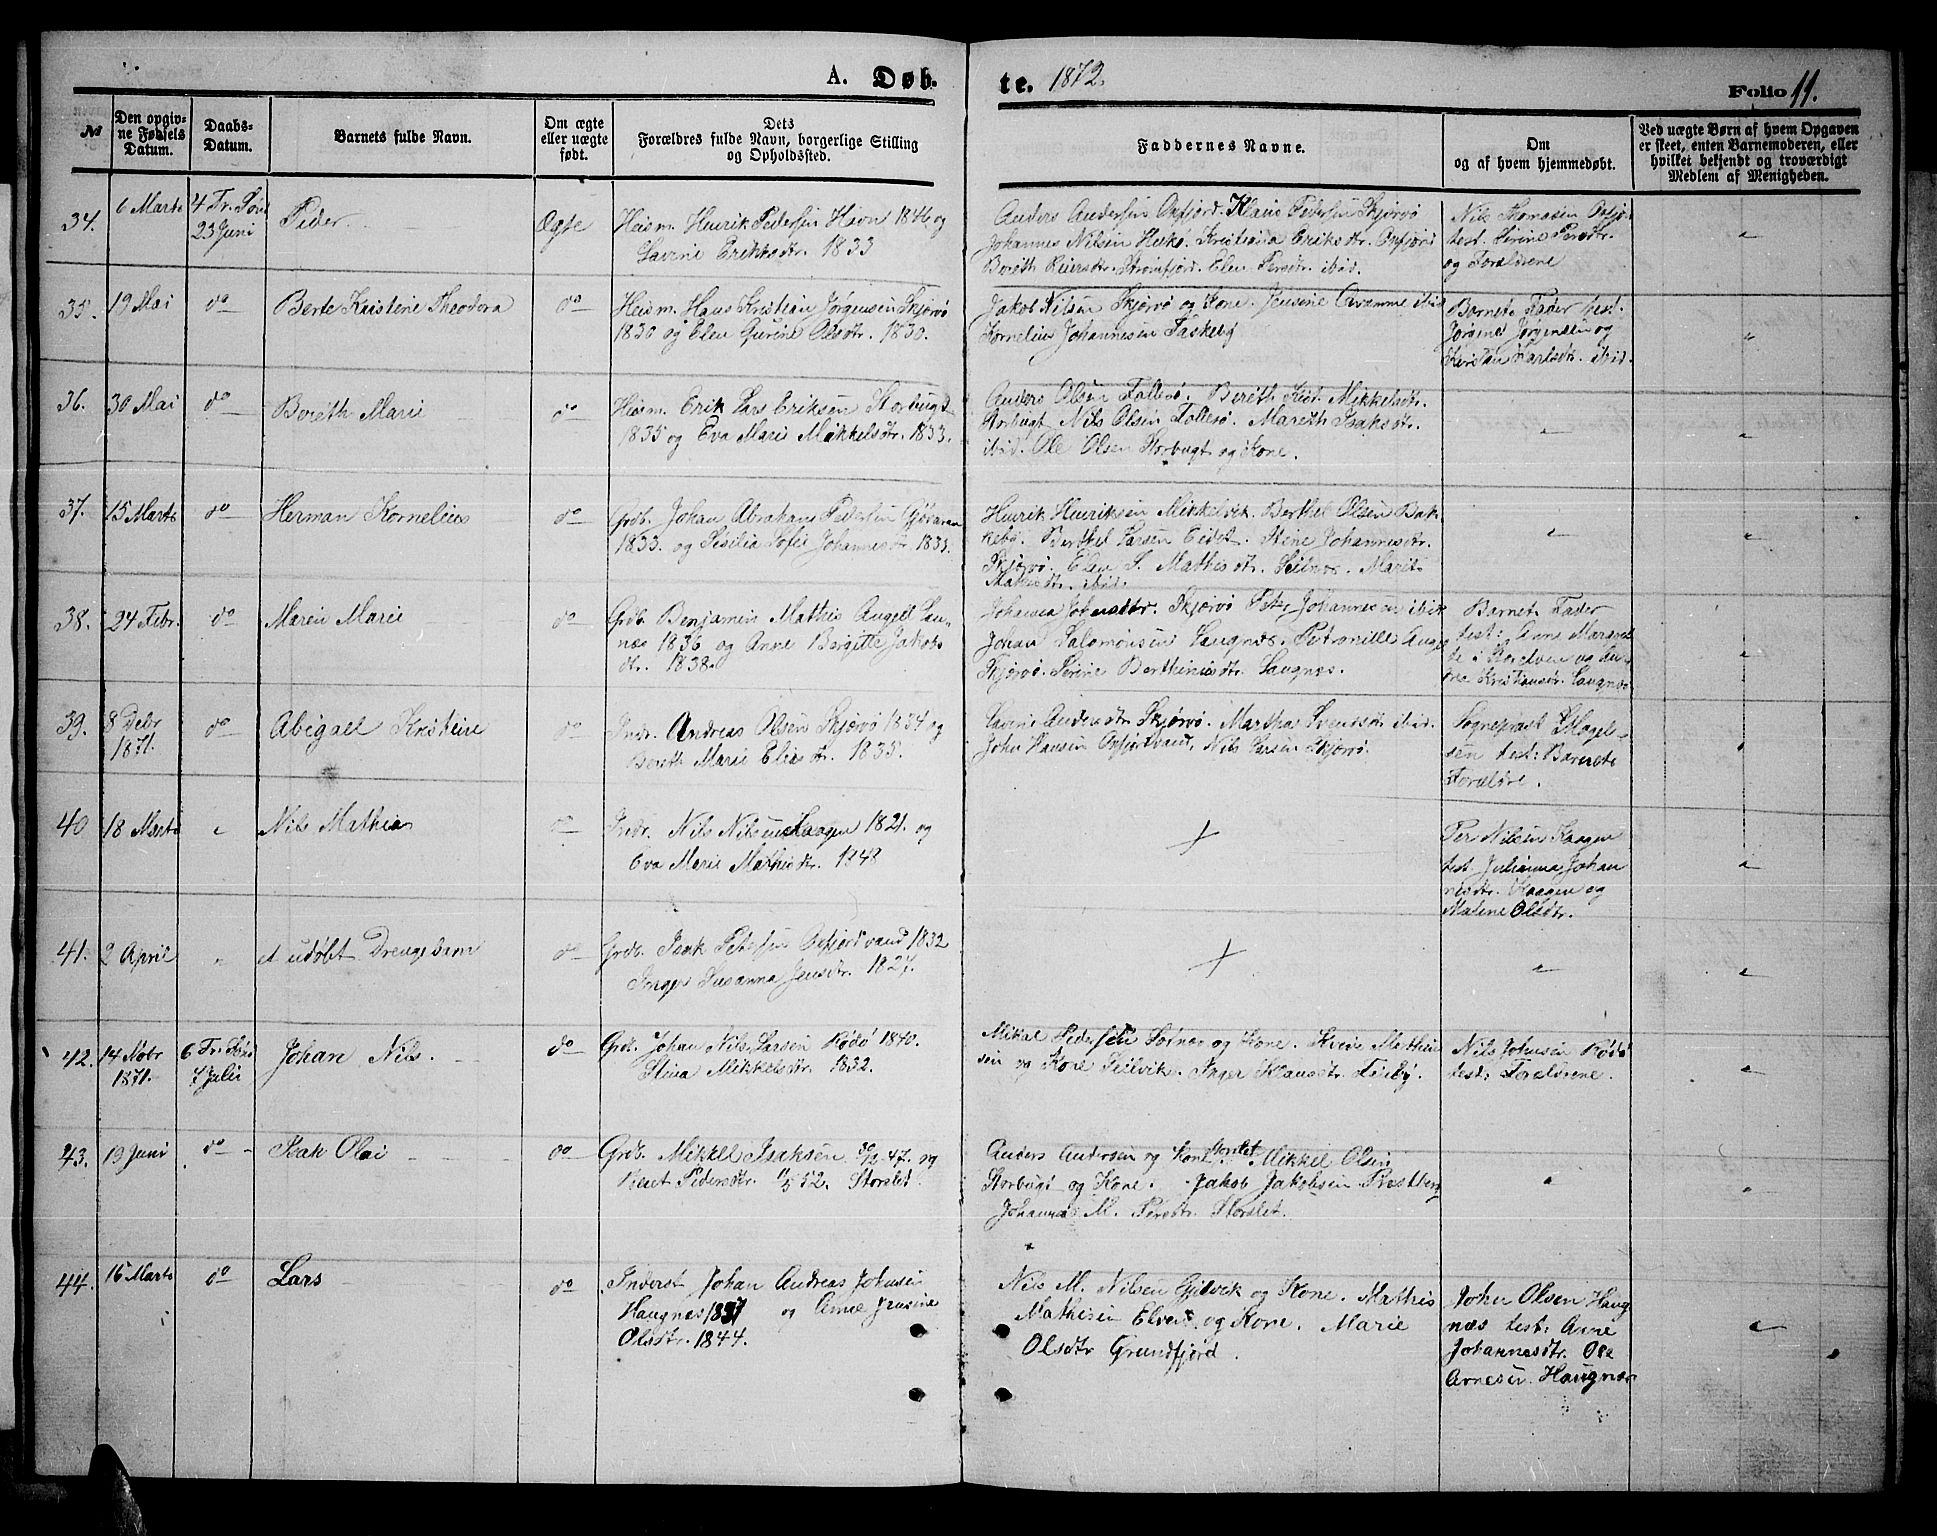 A. Døb.
te. 1872.
Folio 11.
№
Den opgiv-
ne Fødsels
Datum.
Daabs-
Datum.
Barnets fulde Navn.
Om ægte
eller uægte
født.
Dets
Forældres fulde Navn, borgerlige Stilling
og Opholdssted.
Faddernes Navne.
Om
og af hvem hjemmedøbt.
Ved uægte Børn af hvem Opgaven
er skeet, enten Barnemoderen, eller
hvilket bekjendt og troværdigt
Medlem af Menigheden.
34.
6 Marts
4 Tr. Sønd
23 Juni
Peder
Ægte
Huusm. Henrik Pedersen Havn 1846 og
Lavine Eriksdtr. 1833
Anders Andersen Oxfjord. Klaus Pedersen Skjervø
Johannes Nilsen Hukø. Kristiana Eriksdtr. Oxfjord
Bereth Reiersdtr. Strømfjord. Elen Persdtr. ibid.
Nils Thomasen Oxfjo.
test. Serine Persdtr.
og Forældrene
35.
19 Mai
do
Berte Kristine Theodora
do
Huusm. Hans Kristian Jørgensen Skjervø
1830 og Elen Gurine Olsdtr. 1830.
Jakob Nilsen Skjervø og Kone. Jensine Aramme ibid
Kornelius Johannesen Taskeby
Barnets Fader test.
Jørgensen og
Karlsdtr. ibid.
36.
30 Mai
do
Bereth Marie
do
Huusm. Erik Lars Eriksen Storbugt
1835 og Eva Marie Mikkelsdtr. 1833.
Anders Olsen Follesø. Bereth Kirst. Mikkelsdtr.
Storbugt Nils Olsen Follesø. Mareth Isaksdtr.
ibid. Ole Olsen Storbugt og Kone.
37.
15 Marts
do
Herman Kornelius
do
Grdb. Johan Abraham Pedersen Gjøvaren
1833. og Sisilia Sofie Johannesdtr. 1831.
Henrik Henriksen Mikkelvik. Berthel Olsen Bak-
kebø. Berthel Larsen Eidet. Stine Johannesdtr.
Skjervø. Elen S. Mathisdtr. Seilnes. Marit
Mathisdtr. ibid.
38.
24 Febr.
do
Maren Marie
do
Grdb. Benjamin Mathis Angell Lau-
næs 1836 og Anne Bergitte Jakobs
dtr. 1838.
Johanna Johansdtr. Skjervø Peter Johannesen ibid
Johan Salomonsen Laugnæs. Petronille Angel
Skjervø. Serine Berthiniusdtr. Laugnæs.
Barnets Fader
test: Anne Margret-
he
Kristiansdtr. Laugnæs
39.
8 Debr
1871.
do
Abigael Kristine
do
Indr. Andreas Olsen Skjervø 1834 og
Bereth Marie Eliasdtr. 1835.
Lavine Andersdtr. Skjervø. Martha Svendsdtr ibid.
John Hansen Oxfjordvand. Nils Larsen Skjervø.
Sogneprest Mogel-
sen test: Barnets
Forældre.
40
18 Marts
Nils Mathis
do
Indr. Nils Nilsen Kaagen 1821. og
Eva Marie Mathisdtr. 1848
+
Per Nilsen Kaagen
test Julianna Johan
nesdtr. Kaagen og
Malene Olsdtr.
41.
2 April
et udøbt Drengebarn
do
Grdb. Isak Petersen Oxfjordvand 1832
Inger Susanna Jensdtr. 1827.
+
42.
14 Nobr
1871.
6 Tr. Sønd
7 Juli
Johan Nils.
do
Grdb. Johan Nils Larsen Rødø 1840.
Stina Mikkelsdtr. 1832.
Mikal Pedersen Sotnæs og Kone. Mathi
sen og Kone Seilvik. Inger Klausdtr. Taskeby
Nils Johnsen Rødø
test: Forældrene.
43.
19 Juni
do
Isak Olai
do
Grdb. Mikkel Isaksen 30/2 47. og
Beret Pedersdtr. 11/5 52. Storslet
Anders Andersen og Kone Storslet Mikkel Olsen
Storbugt og Kone. Jakob Jakobsen Præstberg
Johanna M. Persdtr. Storslet.
44.
16 Marts
do
Lars
do
Inderst Johan Andreas Johnsen
Haugnæs 1837 og Anne Jensine
Olsdtr. 1844.
Nils M. Nilsen Gjilvik og Kone. Mathis
Mathisen Elvevt. og Kone. Marie
Olsdtr Grundfjord.
John Olsen Haug
næs test: Anne
Johannesdtr. Ole
Arnesen Haugnæs